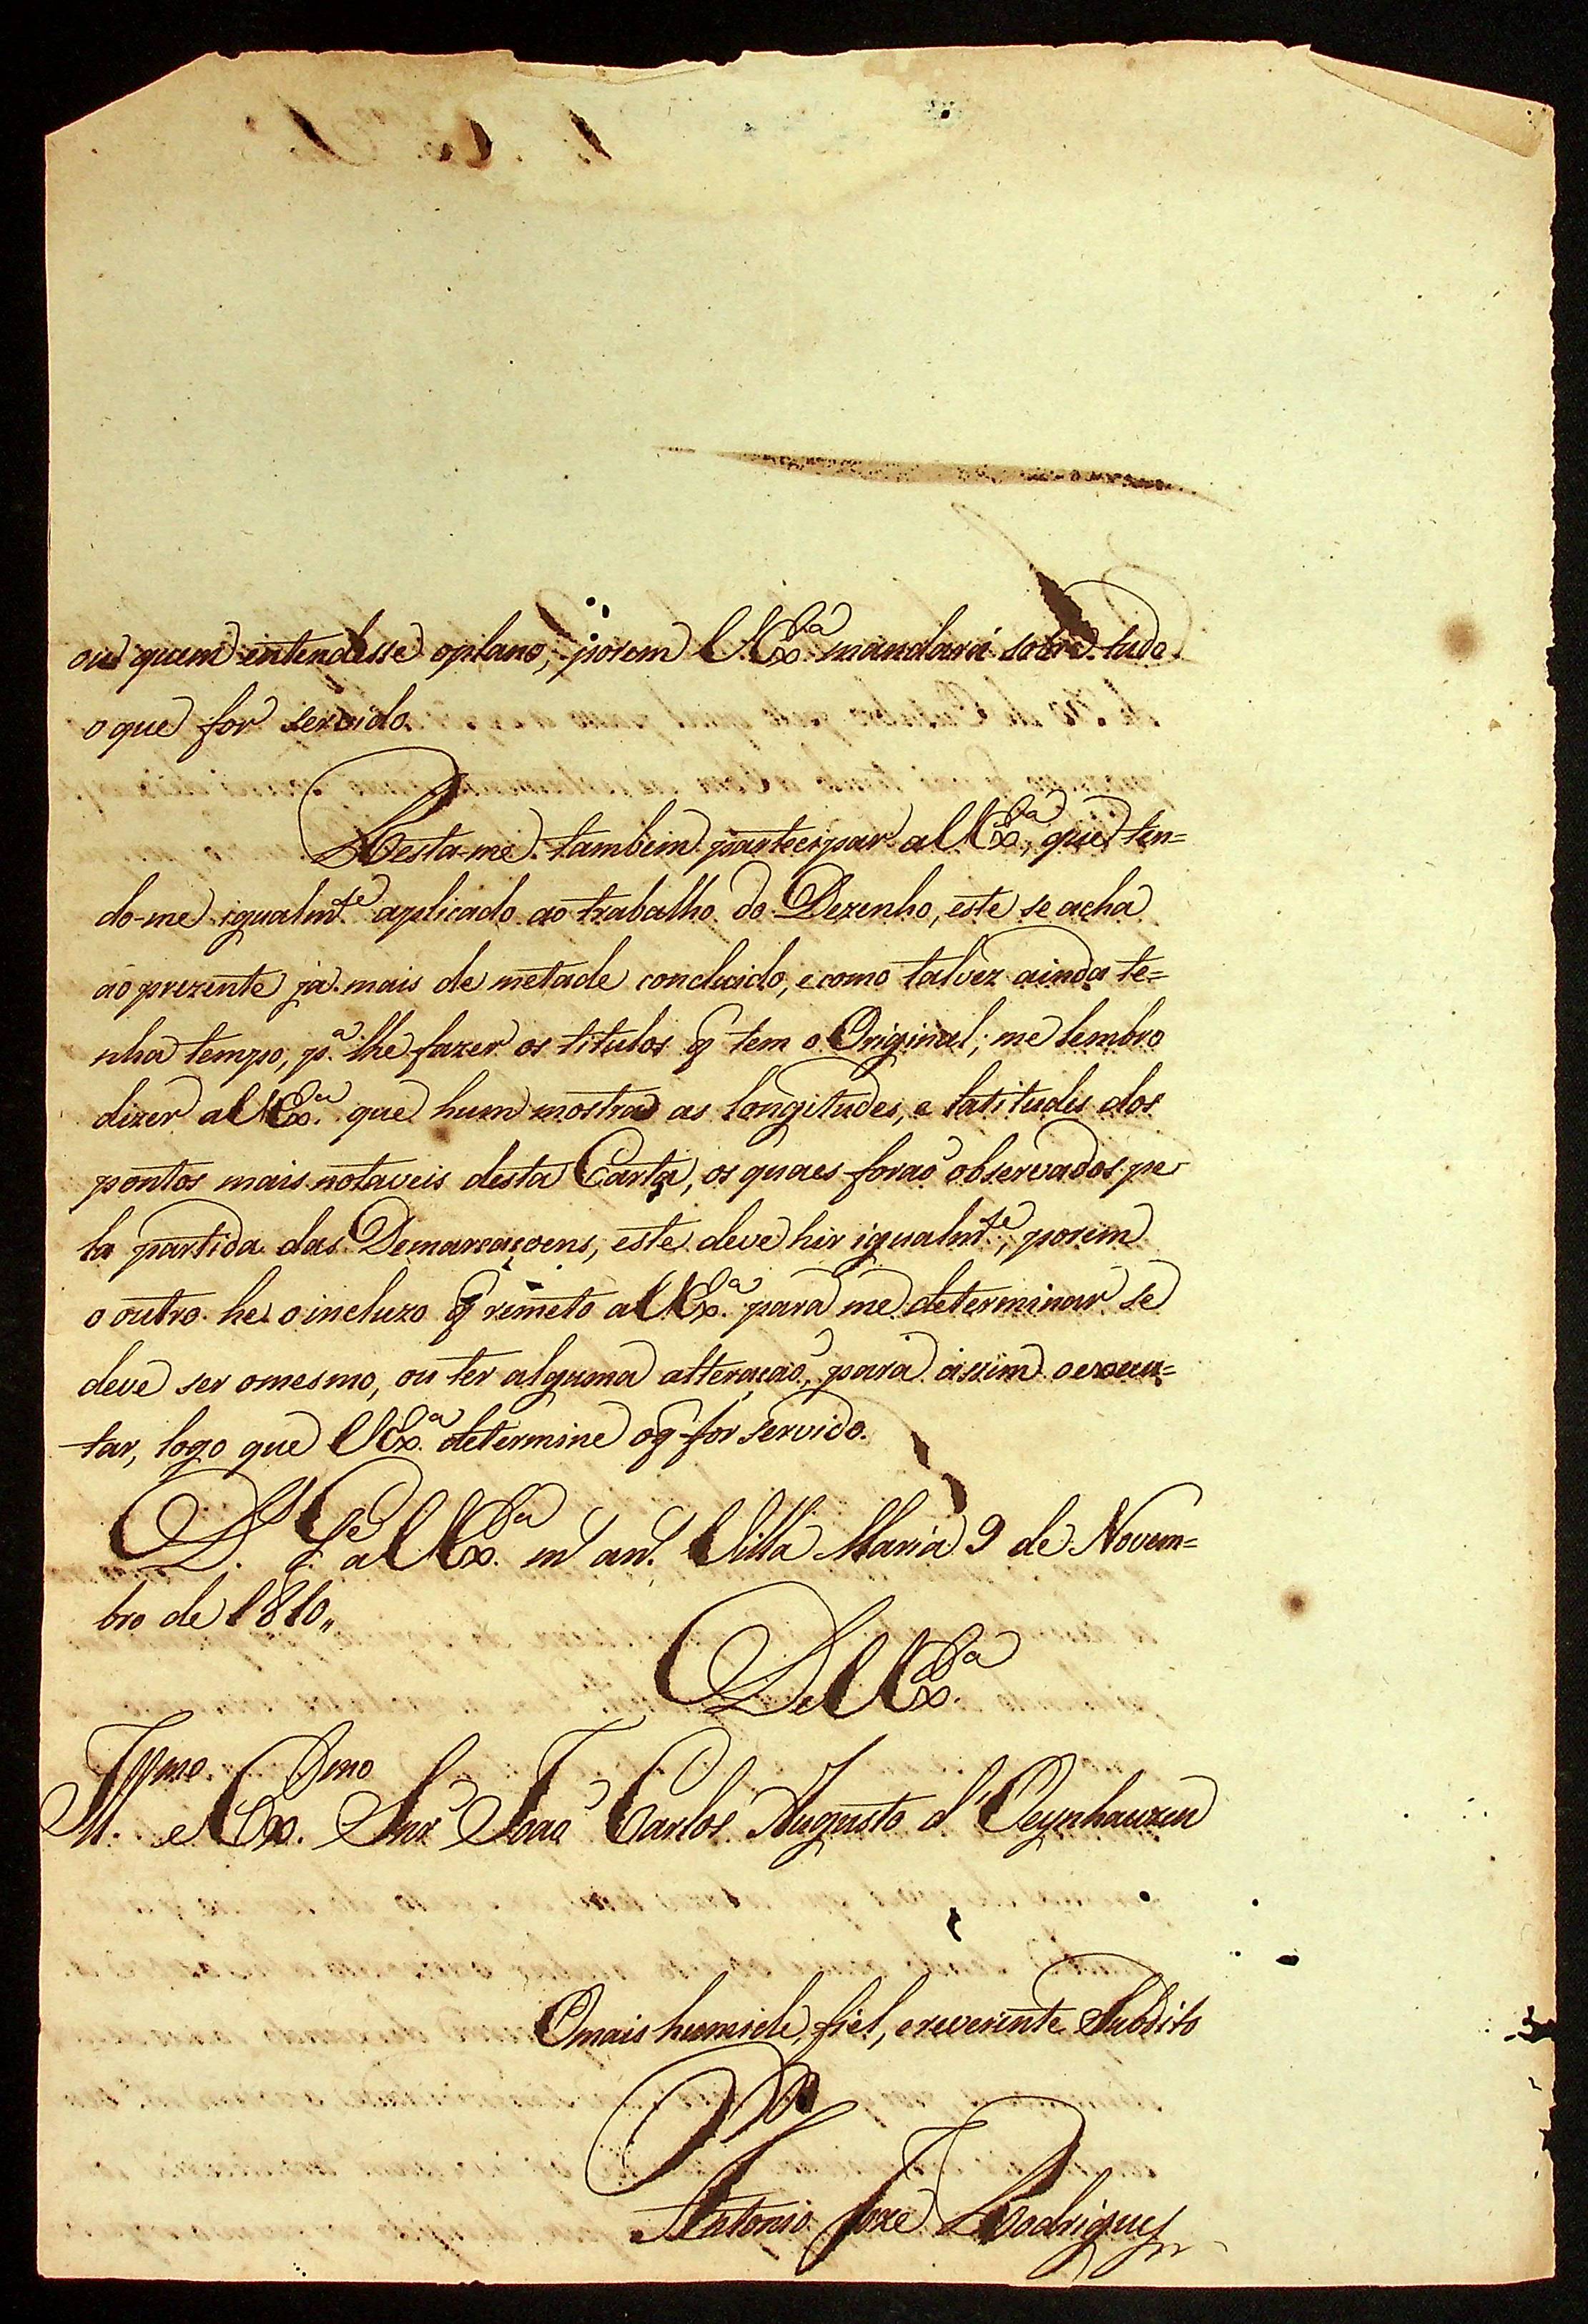 ou quem entendesse oplano, porem V. Ex.ª mandará sobre tudo
oque for servido.
Resta-me tambem partecipar a V. Ex.ª, que ten=
do-me igualm.te aplicado ao trabalho do Dezenho, este se acha
ao prezente já mais de metade concluido, e como talvez ainda te=
nha tempo, p.ª lhe fazer os titulos q̃ tem o Original; me lembro
dizer a V. Ex.ª que hum mostra as longitudes, e latitudes dos
pontos mais notaveis desta Carta, os quaes foraõ observados pe
la partida das Demarcaçoens, este deve hir igualm.te, porem
o outro he o incluzo q̃ remeto a V. Ex.ª para me determinar se
deve ser omesmo, ou ter alguma alteraçaõ, para assim o execu=
tar, logo que V. Ex.ª determine oq̃ for servido.
D.s G.e a V. Ex.ª m.s an.s Villa Maria 9 de Novem=
bro de 1810,,
De V. Ex.ª
Ill.mo e Ex.mo Snr. Joaõ Carlos Augusto d'Oeynhauzen
Omais humilde, fiel, ereverente Subdito
Antonio Joze Rodrigues